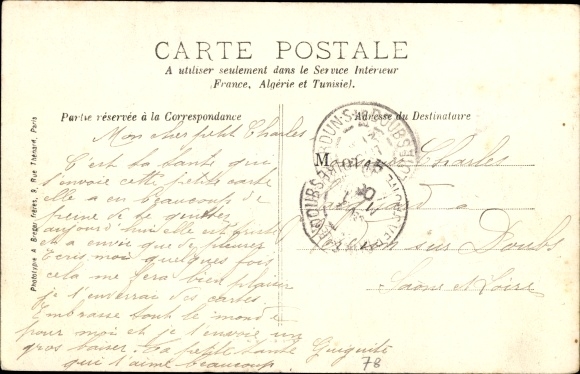 CARTE POSTALE
A utiliser seulement dans le Service Intérieur
(France, Algérie et Tunisie).
Partie réservée à la Correspondance
Adresse du Destinataire
Mon cher petit Charles
C'est ta tante qui
t'envoie cette petite carte
elle a eu beaucoup de
peine de te quitter
aujourd'hui elle est
et a envie que de pleurer
Ecris moi quelques fois
cela me fera bien plaisir
je t'enverrai des cartes.
Embrasse tout le monde
pour moi et je t'envoie un
gros baiser. Ta petite tante
qui t'aime beaucoup
M Charles
à
sur Doubs
Saône et Loire
78
Phototypie A. Breger frères, 9, Rue Thénard, Paris